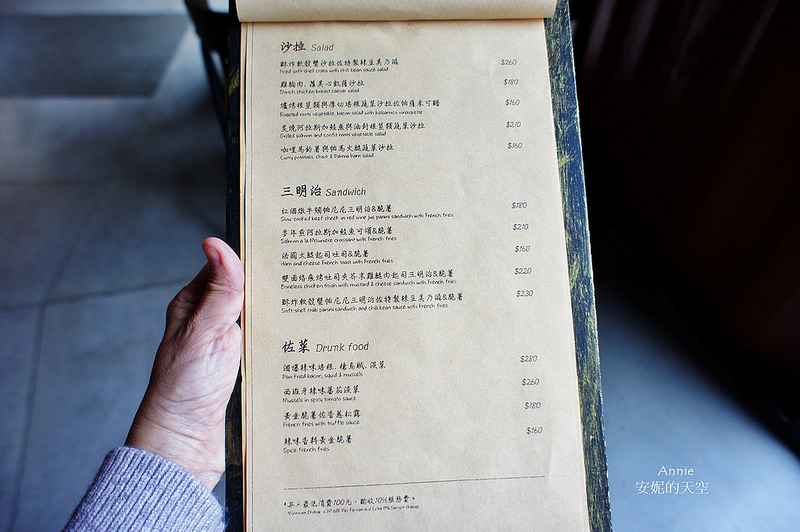 沙拉 Salad
酥炸軟殼蟹沙拉佐特製辣豆美乃滋 $260
Fried soft-shell crabs with chili bean sauce salad
雞胸肉.蘿美心凱薩沙拉 $180
Blanch chicken breast caesar salad
爐烤根莖類與厚切培根蔬菜沙拉佐帕薩米可醋 $160
Roasted roots vegetable, bacon salad with balsamico vinaigrette
炙燒阿拉斯加鮭魚與油封根莖類蔬菜沙拉 $210
Grilled salmon and confit roots vegetable salad
咖哩馬鈴薯與帕馬火腿蔬菜沙拉 $160
Curry potatoes, chive & Parma ham salad
三明治 Sandwich
紅酒燉牛頰帕尼尼三明治&脆薯 $180
Slow-cooked beef cheek in red wine jus panini sandwich with French fries
麥年煎阿拉斯加鮭魚可頌&脆薯 $210
Salmon a la Meuniere croissant with French fries
法國火腿起司吐司&脆薯 $160
Ham and cheese French toast with French fries
雙面烙痕烤吐司夾芥末雞腿肉起司三明治&脆薯 $220
Boneless chicken thigh with mustard & cheese sandwich with French fries
酥炸軟殼蟹帕尼尼三明治佐特製辣豆美乃滋&脆薯 $230
Soft-shell crab panini sandwich and chili bean sauce with French fries
佐菜 Drunk food
酒爆辣味培根.槍烏賊.淡菜 $280
Pan-Fried bacon, squid & mussels
西班牙辣味蕃茄淡菜 $260
Mussels in spicy tomato sauce
黃金脆薯佐香蔥松露 $180
French fries with truffle sauce
辣味香料黃金脆薯 $160
Spice french fries
*每人最低消費100元，酌收10%服務費。
Minimum Charge is NT$100 Per Person and Extra 10% Service Charge
Annie
安妮的天空